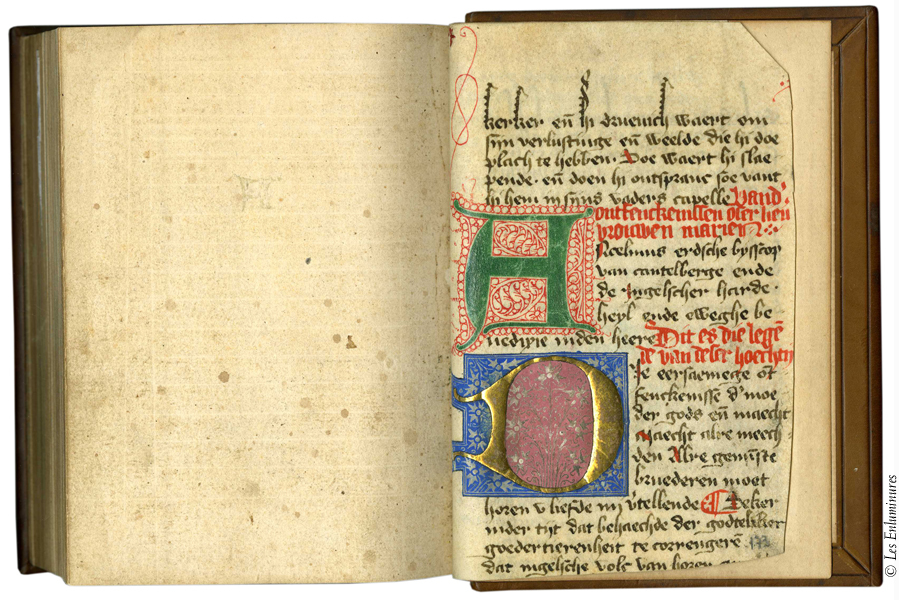 kerker eñ hi druevich waert om
sijn verlustinge eñ weelde die hi doe
plach te hebben. Doe waert hi slae
pende. eñ doen hi ontspranc soe vant
hi hem in sijns vaders capelle Vand'
ontfenckenissen onser lieu
vrouwen marien
Ancelmus erdsche byscop
van cantelberge ende
de ingelscher harde.
heyl ende eweghe be
nedixie inden heere Dit es die legē
de van deser hoechtyt
Die eersaemege ōt
fenckenisse d' moe
der gods eñ maecht
maecht alre meech
den Alre gemīste
bruederen moet
horen v liefde mi v'tellende Zeker
inder tijt dat behaechde der godteliker
goedertierenheit te correngerē
dat ingelsche volc van horen
© Les Enluminures